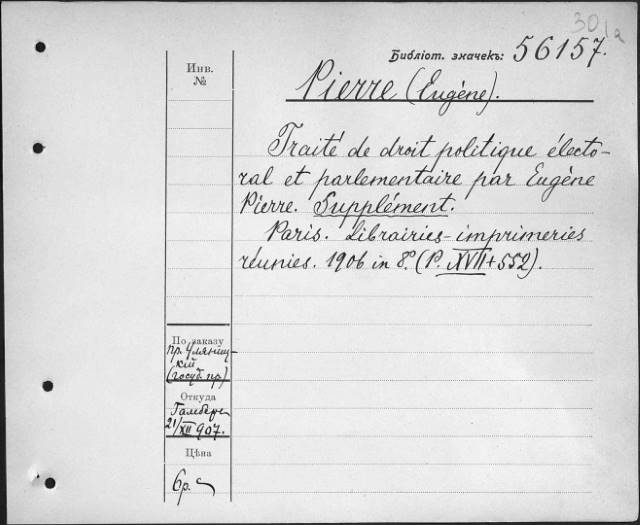 301a
Библіот. значекъ: 56157.
Инв.
№
Pierre (Eugène).
Traité de droit politique électo-
ral et parlementaire par Eugène
Pierre. Supplément.
Paris. Librairies-imprimeries
réunies. 1906 in 8º. (P. XVII+552).
По заказу
пр. Уляниц-
кій
(госуд. пр.)
Откуда
21/XII 907.
Цѣна
6р.